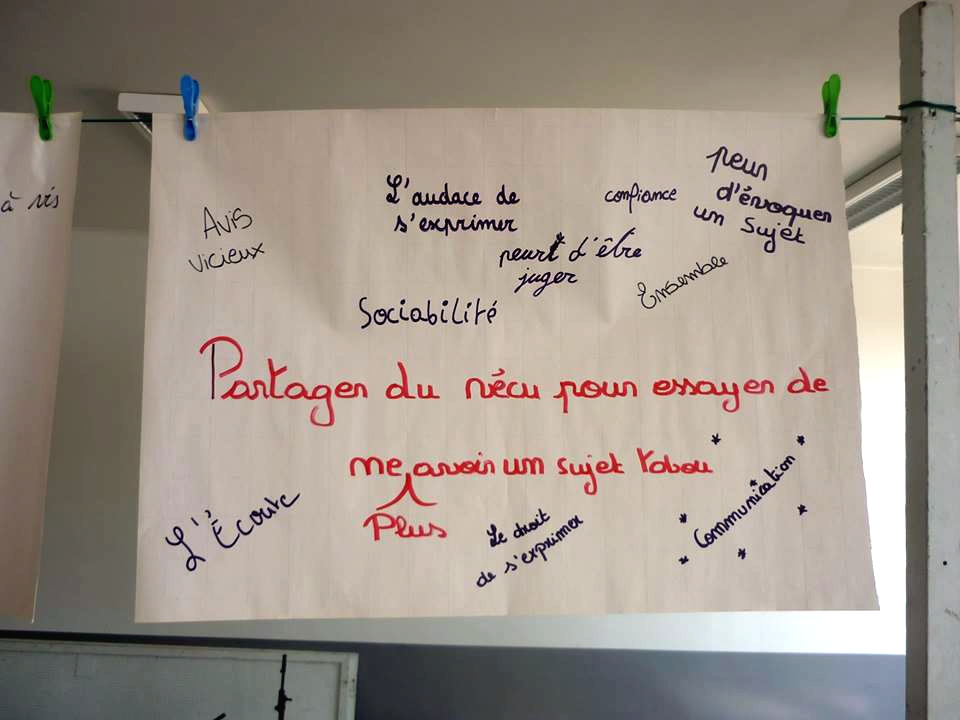 à vis
Avis
vicieux
L'audace de
s'exprimer
confiance
peur
d'évoquer
un sujet
peurt d'être
juger
Ensemble
Sociabilité
Partager du vécu pour essayer de
ne avoir un sujet Tabou
Plus
L'Écoute
Le droit
de s'exprimer
* Communication *